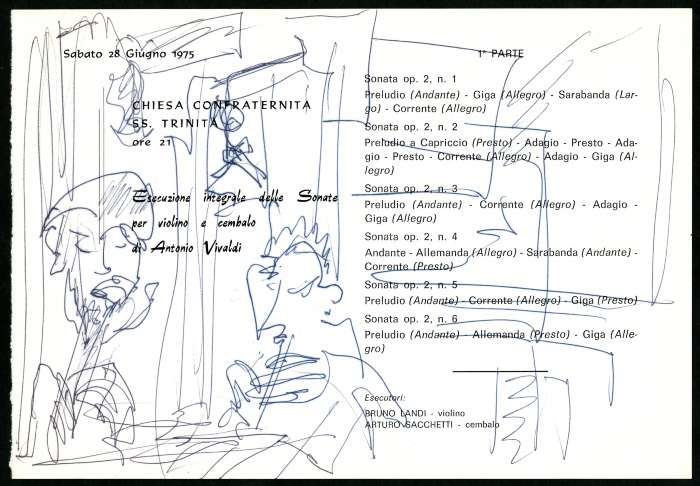 Sabato 28 Giugno 1975
CHIESA CONFRATERNITA
SS. TRINITÀ
ore 21
Esecuzione integrale delle Sonate
per violino e cembalo
di Antonio Vivaldi
1ª PARTE
Sonata op. 2, n. 1
Preludio (Andante) - Giga (Allegro) - Sarabanda (Lar-
go) - Corrente (Allegro)
Sonata op. 2, n. 2
Preludio a Capriccio (Presto) - Adagio - Presto - Ada-
gio - Presto - Corrente (Allegro) - Adagio - Giga (Al-
legro)
Sonata op. 2, n. 3
Preludio (Andante) - Corrente (Allegro) - Adagio -
Giga (Allegro)
Sonata op. 2, n. 4
Andante - Allemanda (Allegro) - Sarabanda (Andante) -
Corrente (Presto)
Sonata op. 2, n. 5
Preludio (Andante) - Corrente (Allegro) - Giga (Presto)
Sonata op. 2, n. 6
Preludio (Andante) - Allemanda (Presto) - Giga (Alle-
gro)
Esecutori:
BRUNO LANDI - violino
ARTURO SACCHETTI - cembalo